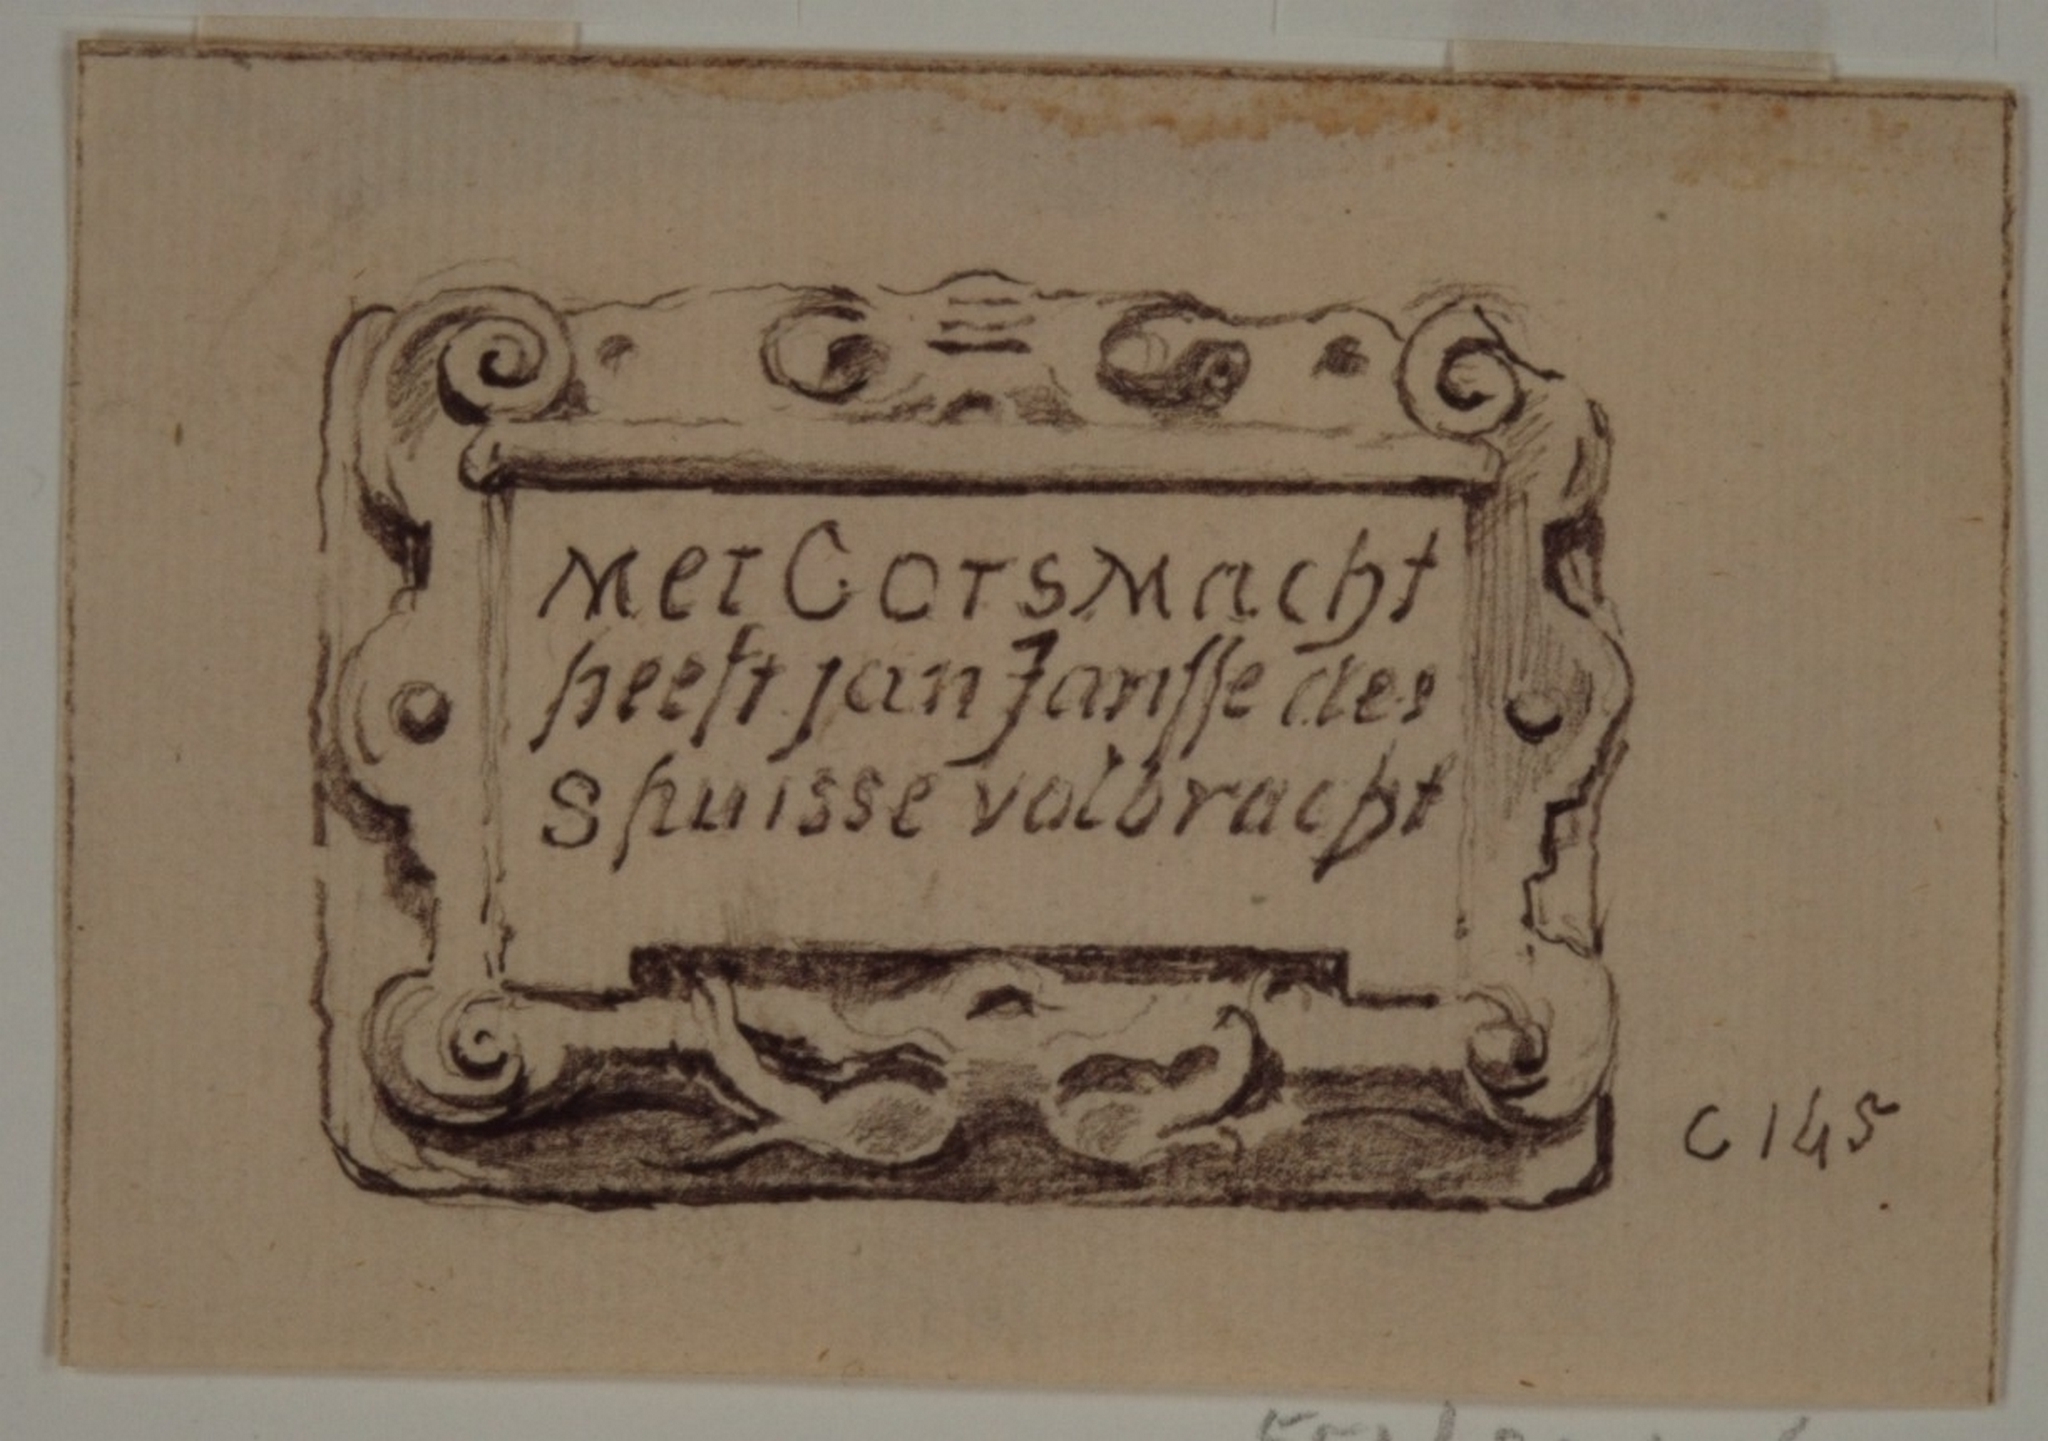 Met Gots Macht
heeft jan Jansse des
S huisse volbracht
C 145